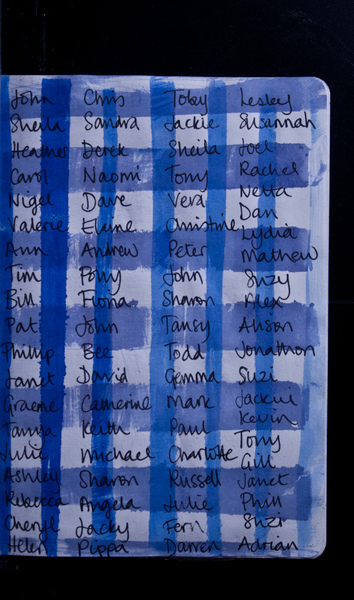 John Chris Toby Lesley
Sheila Sandra Jackie Susannah
Heather Derek Sheila Joel
Carol Naomi Tony Rachel
Nigel Dave Vera Netta
Valerie Elaine Christine Dan
Ann Andrew Peter Lydia
Tim Polly John Mathew
Bill Fiona Sharon Suzy
Pat John Tansy Alex
Phillip Bee Todd Alison
Janet David Gemma Jonathon
Graeme Catherine Mark Suzi
Tanya Keith Paul Jackie
Julie Michael Charlotte Kevin
Ashley Sharon Russell Tony
Rebecca Angela Julie Gill
Cheryl Jacky Fern Janet
Helen Pippa Darren Phill
Suzi
Adrian